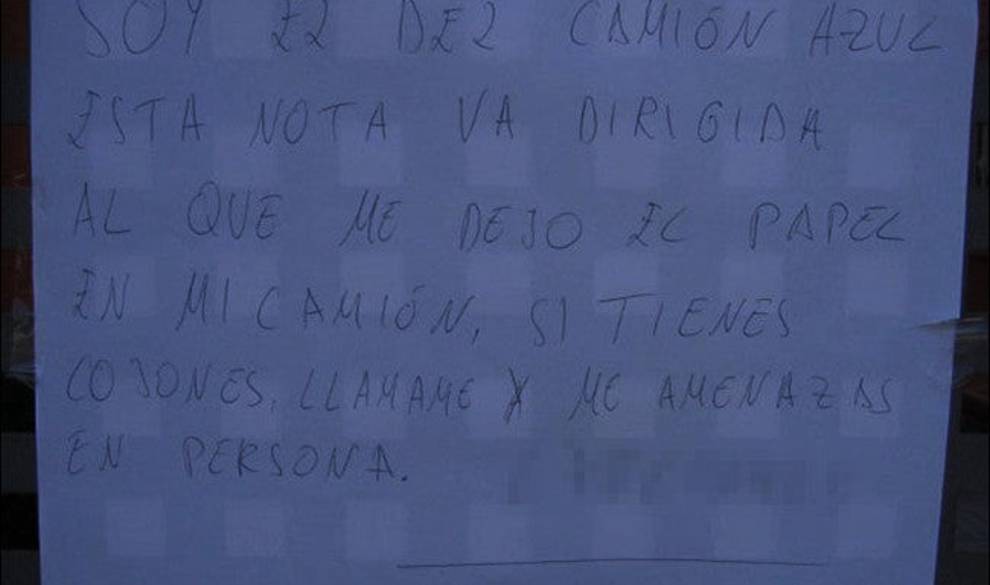 SOY EL DEL CAMIÓN AZUL
ESTA NOTA VA DIRIGIDA
AL QUE ME DEJO EL PAPEL
EN MI CAMIÓN, SI TIENES
COJONES, LLAMAME Y ME AMENAZAS
EN PERSONA.